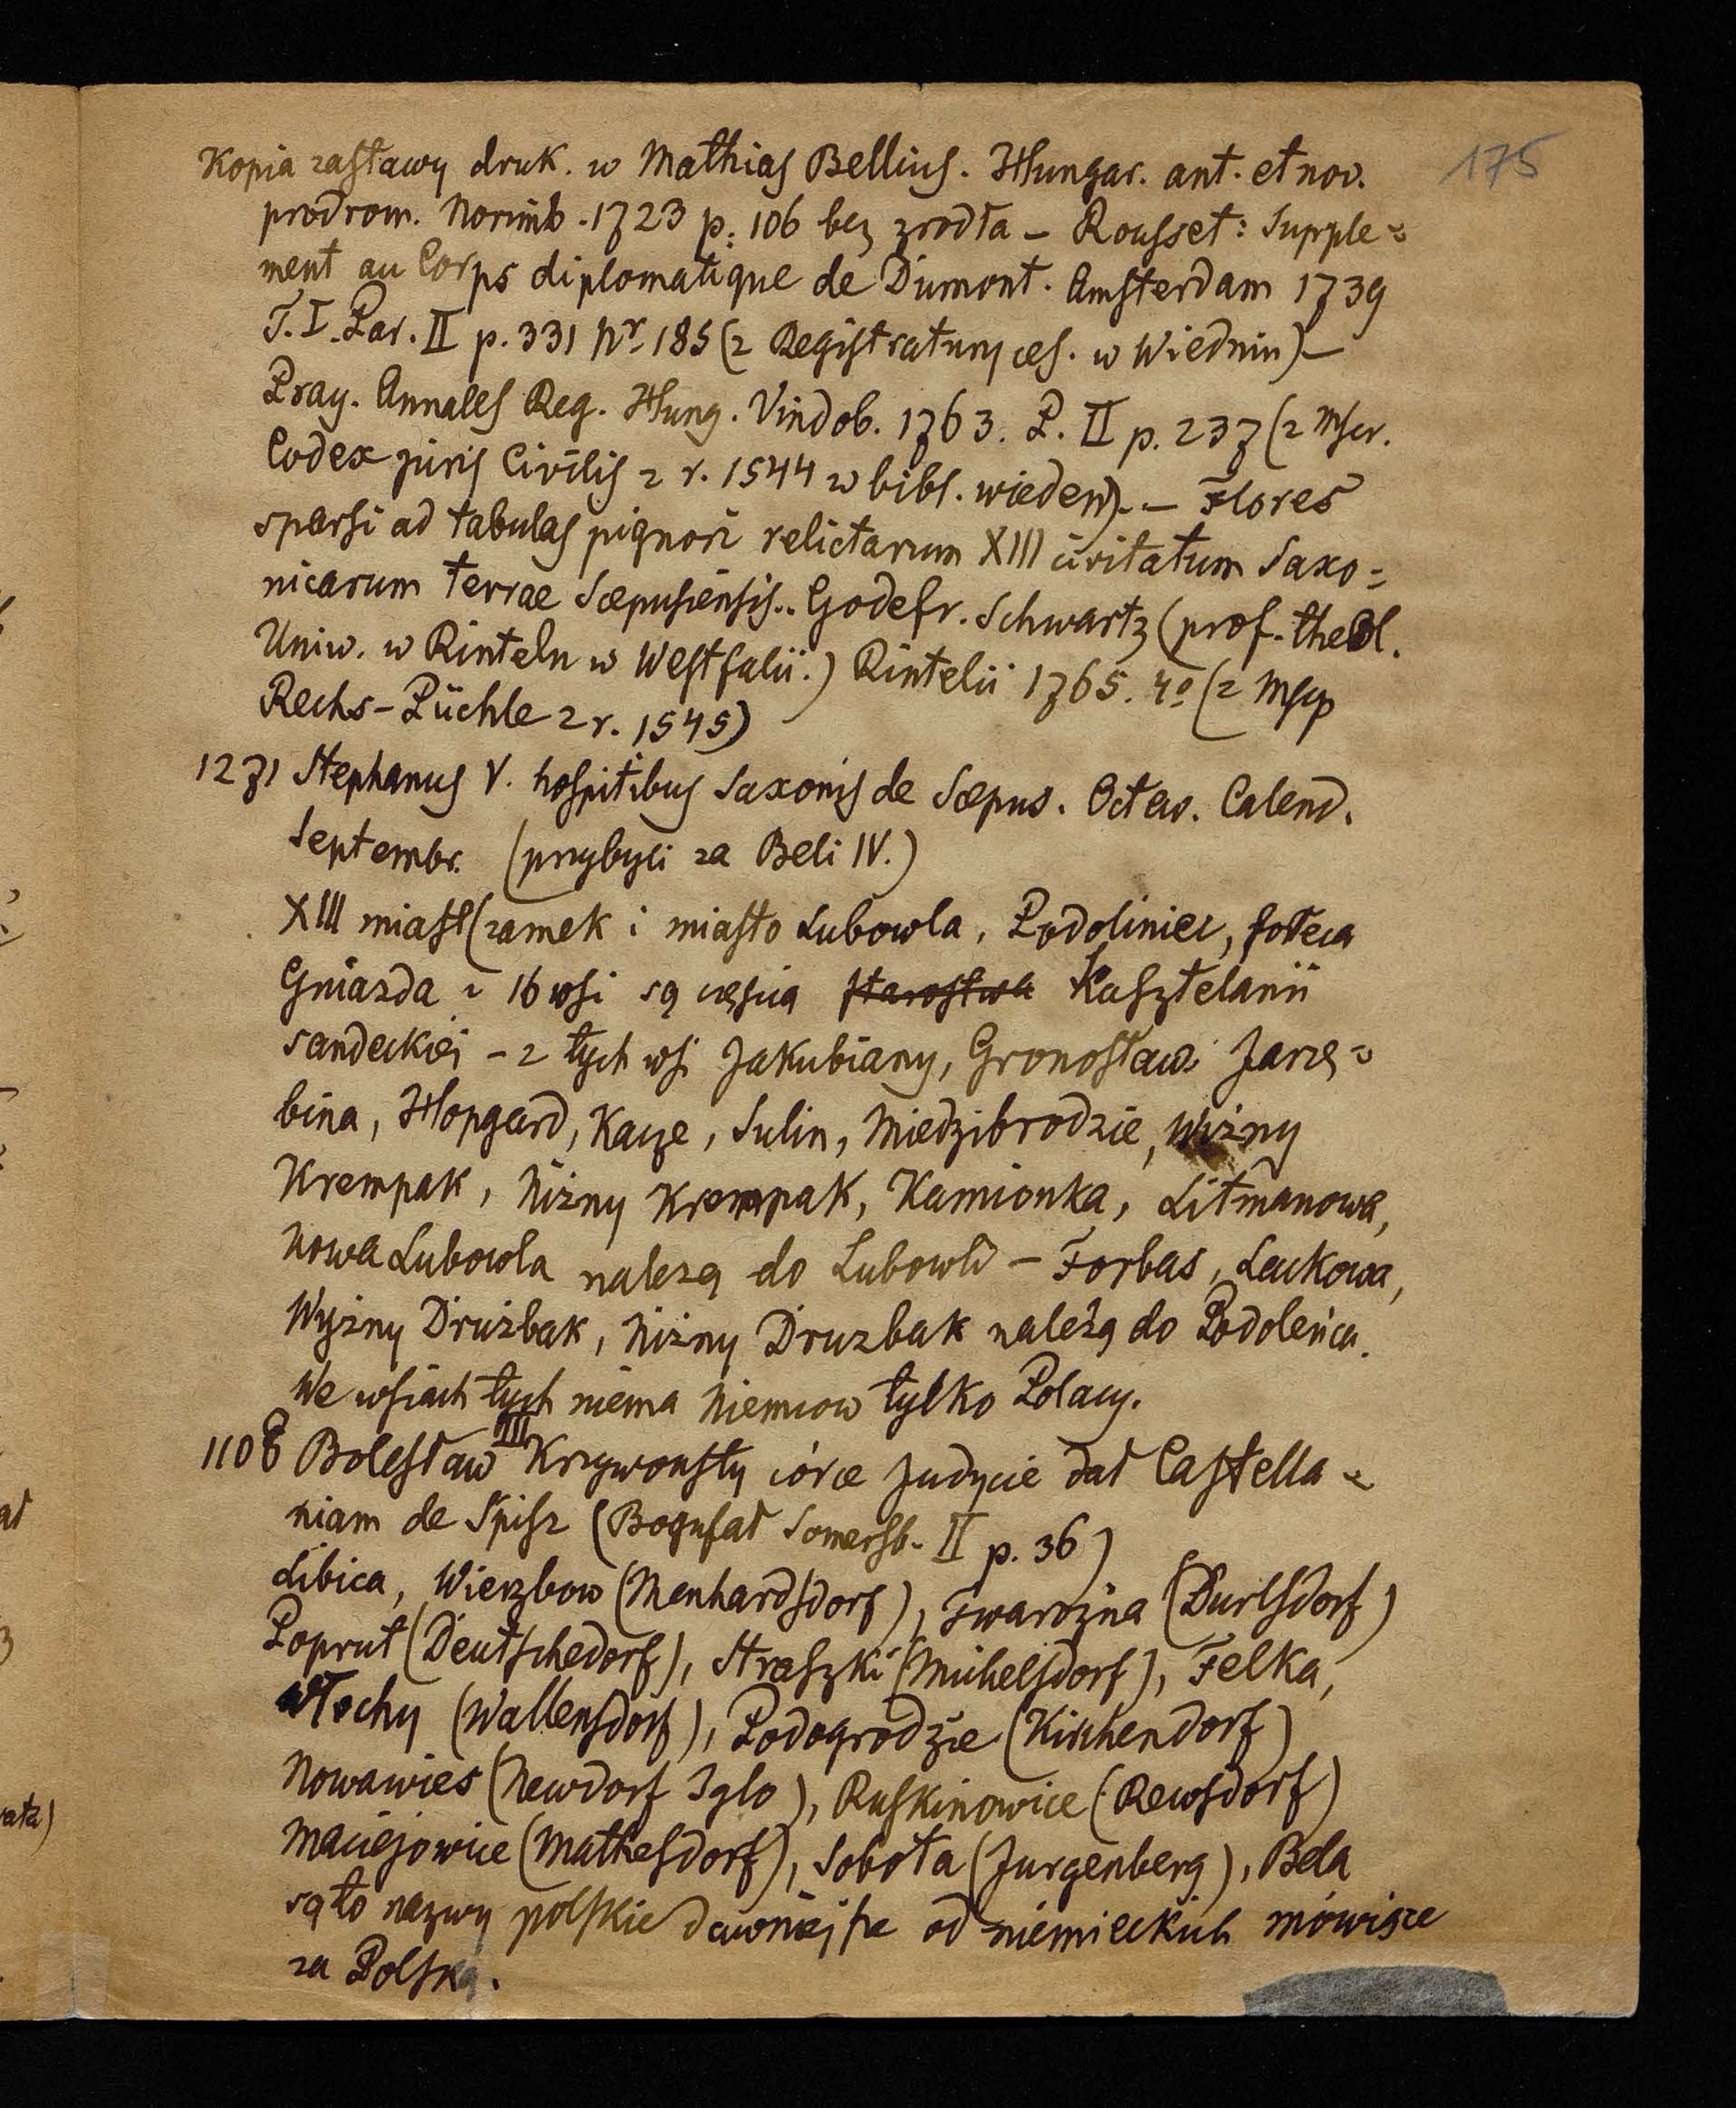 175
Kopia zastawy druk. w Mathias Bellius. Hungar. ant. et nov.
prodrom. Norimb. 1723 p. 106 bez zrodła – Rousset: Supple=
ment au Corps diplomatique de Dumont. Amsterdam 1739
T. I. Par. II p. 331 Nr. 185 (z Registratury ces. w Wiedniu) –
Pray. Annales Reg. Hung. Vindob. 1763. P. II p. 237 (z Mscr.
Codex juris Civilis z r. 1544 w bibl. wieden). – Flores
sparsi ad tabulas pignori relictarum XIII civitatum Saxo=
nicarum terrae Scepusiensis.. Godefr. Schwartz (prof. theol.
Uniw. w Rinteln w Westfalii.) Rintelii 1765. 4o (z Mscp
Rechs-Püchle z r. 1545)
1271 Stephanus V. hospitibus Saxonis de Scepus. Octav. Calend.
Septembr. (przybyli za Beli IV.)
XIII miast (zamek i miasto Lubowla, Podoliniec,
Gniazda i 16 wsi są częścią starostwa Kasztelanii
sandeckiej – z tych wsi Jakubiany, Gronostaw Jarzę=
bina, Hopgard, Kacze, Sulin, Miedzibrodzie, Wiżny
Krempak, Niżny Krempak, Kamionka, Litmanowa,
Nowa Lubowla należą do Lubowli – Forbas, Lackowa,
Wyżny Drużbak, Niżny Druzbak należą do Podoleńca.
We wsiach tych niema Niemcow tylko Polacy.
1108 Bolesław III Krzywousty córce Judycie dał Castella=
niam de Spisz (Bogufał Somersb. II p. 36)
Libica, Wierzbow (Menhardsdorf), Twarożna (Durlsdorf)
Poprut (Deutschedorf), Straszki (Michelsdorf), Felka,
Włochy (Wallensdorf), Podogrodzie (Kirchendorf)
Nowawies (Newdorf Iglo), Ruskinowice (Rewsdorf)
Maciejowice (Mathesdorf), Sobota (Jurgenberg), Bela
są to nazwy polskie dawniejsze od niemieckich mówiące
za Polską.